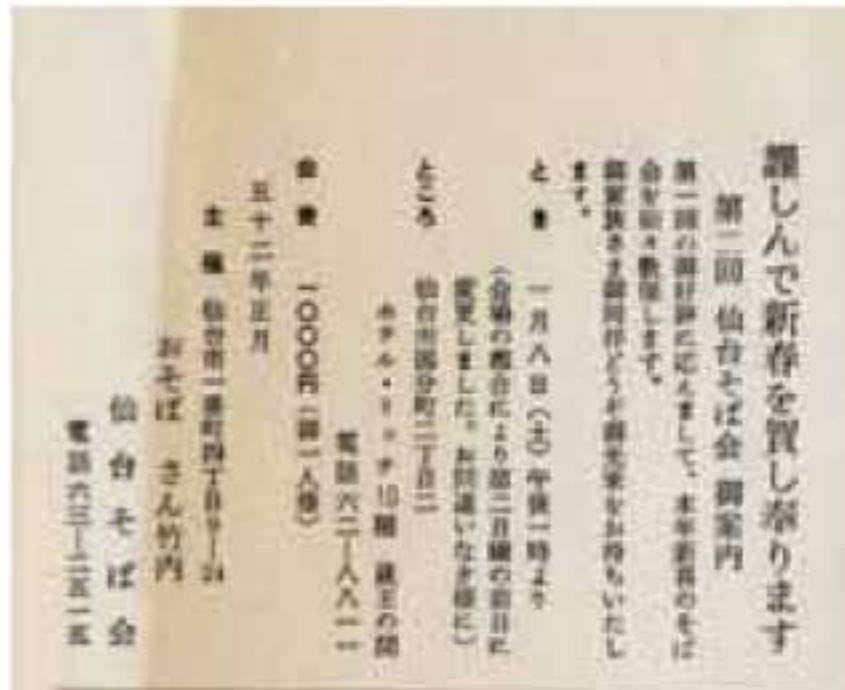 謹しんで新春を賀し奉ります
第二回 仙台そば会 御案内
第一回の御好評に応えまして、本年新春のそば
会を 致します。
御家族さま御同伴どうぞ御光来をお待ちいたし
ます。
とき 一月八日(土)午後一時より
(会場の都合により第二月曜の前日に
変更しました。お間違いなき様に)
ところ 仙台市国分町二丁目二
ホテル・リッチ10階 蔵王の間
電話六二―八八一一
会費 一〇〇〇円(御一人様)
五十二年正月
主催 仙台市一番町四丁目9―24
おそば さん竹内
仙台そば会
電話六三―二五一五